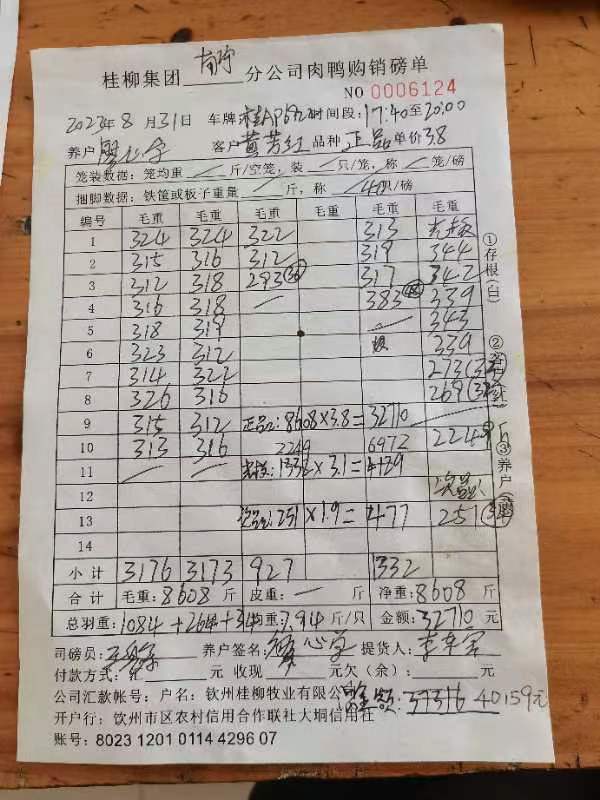 桂柳集团 南宁 分公司肉鸭购销磅单
NO 0006124
2023年8月31日 车牌 时间段:17:40至20:00
养户 客户黄芳红 品种正品 单价3.8
笼装数据:笼均重 / 斤/空笼,装 / 只/笼,称 / 笼/磅
捆脚数据:铁筐或板子重量 / 斤,称 40只/磅
编号 毛重 毛重 毛重 毛重 毛重 毛重
1 324 324 322 313
2 315 316 312 319 344
3 312 318 293(36) 317 342
4 316 318 — 383(48) 339
5 318 319 — 343
6 323 312 339
7 314 322 273
8 326 316 269
9 315 312 正品:8608×3.8=32710
10 313 316 2249 6972 2249斤
11 — — 1332×3.1=4129
12 次品:
13 次品:251×1.9=477 251
14
小计 3176 3173 927 1332
合计 毛重:8608斤 皮重:—斤 净重:8608斤
总羽重:1084+264+34 均重:7.94斤/只 金额:32710元
司磅员: 养户签名: 提货人:
付款方式: 收现 元欠(余): 元
公司汇款帐号:户名:钦州桂柳牧业有限公司 总额:37316 40159元
开户行:钦州市区农村信用合作联社大垌信用社
账号:8023 1201 0114 4296 07
①存根(白)
②客户(红)
③养户